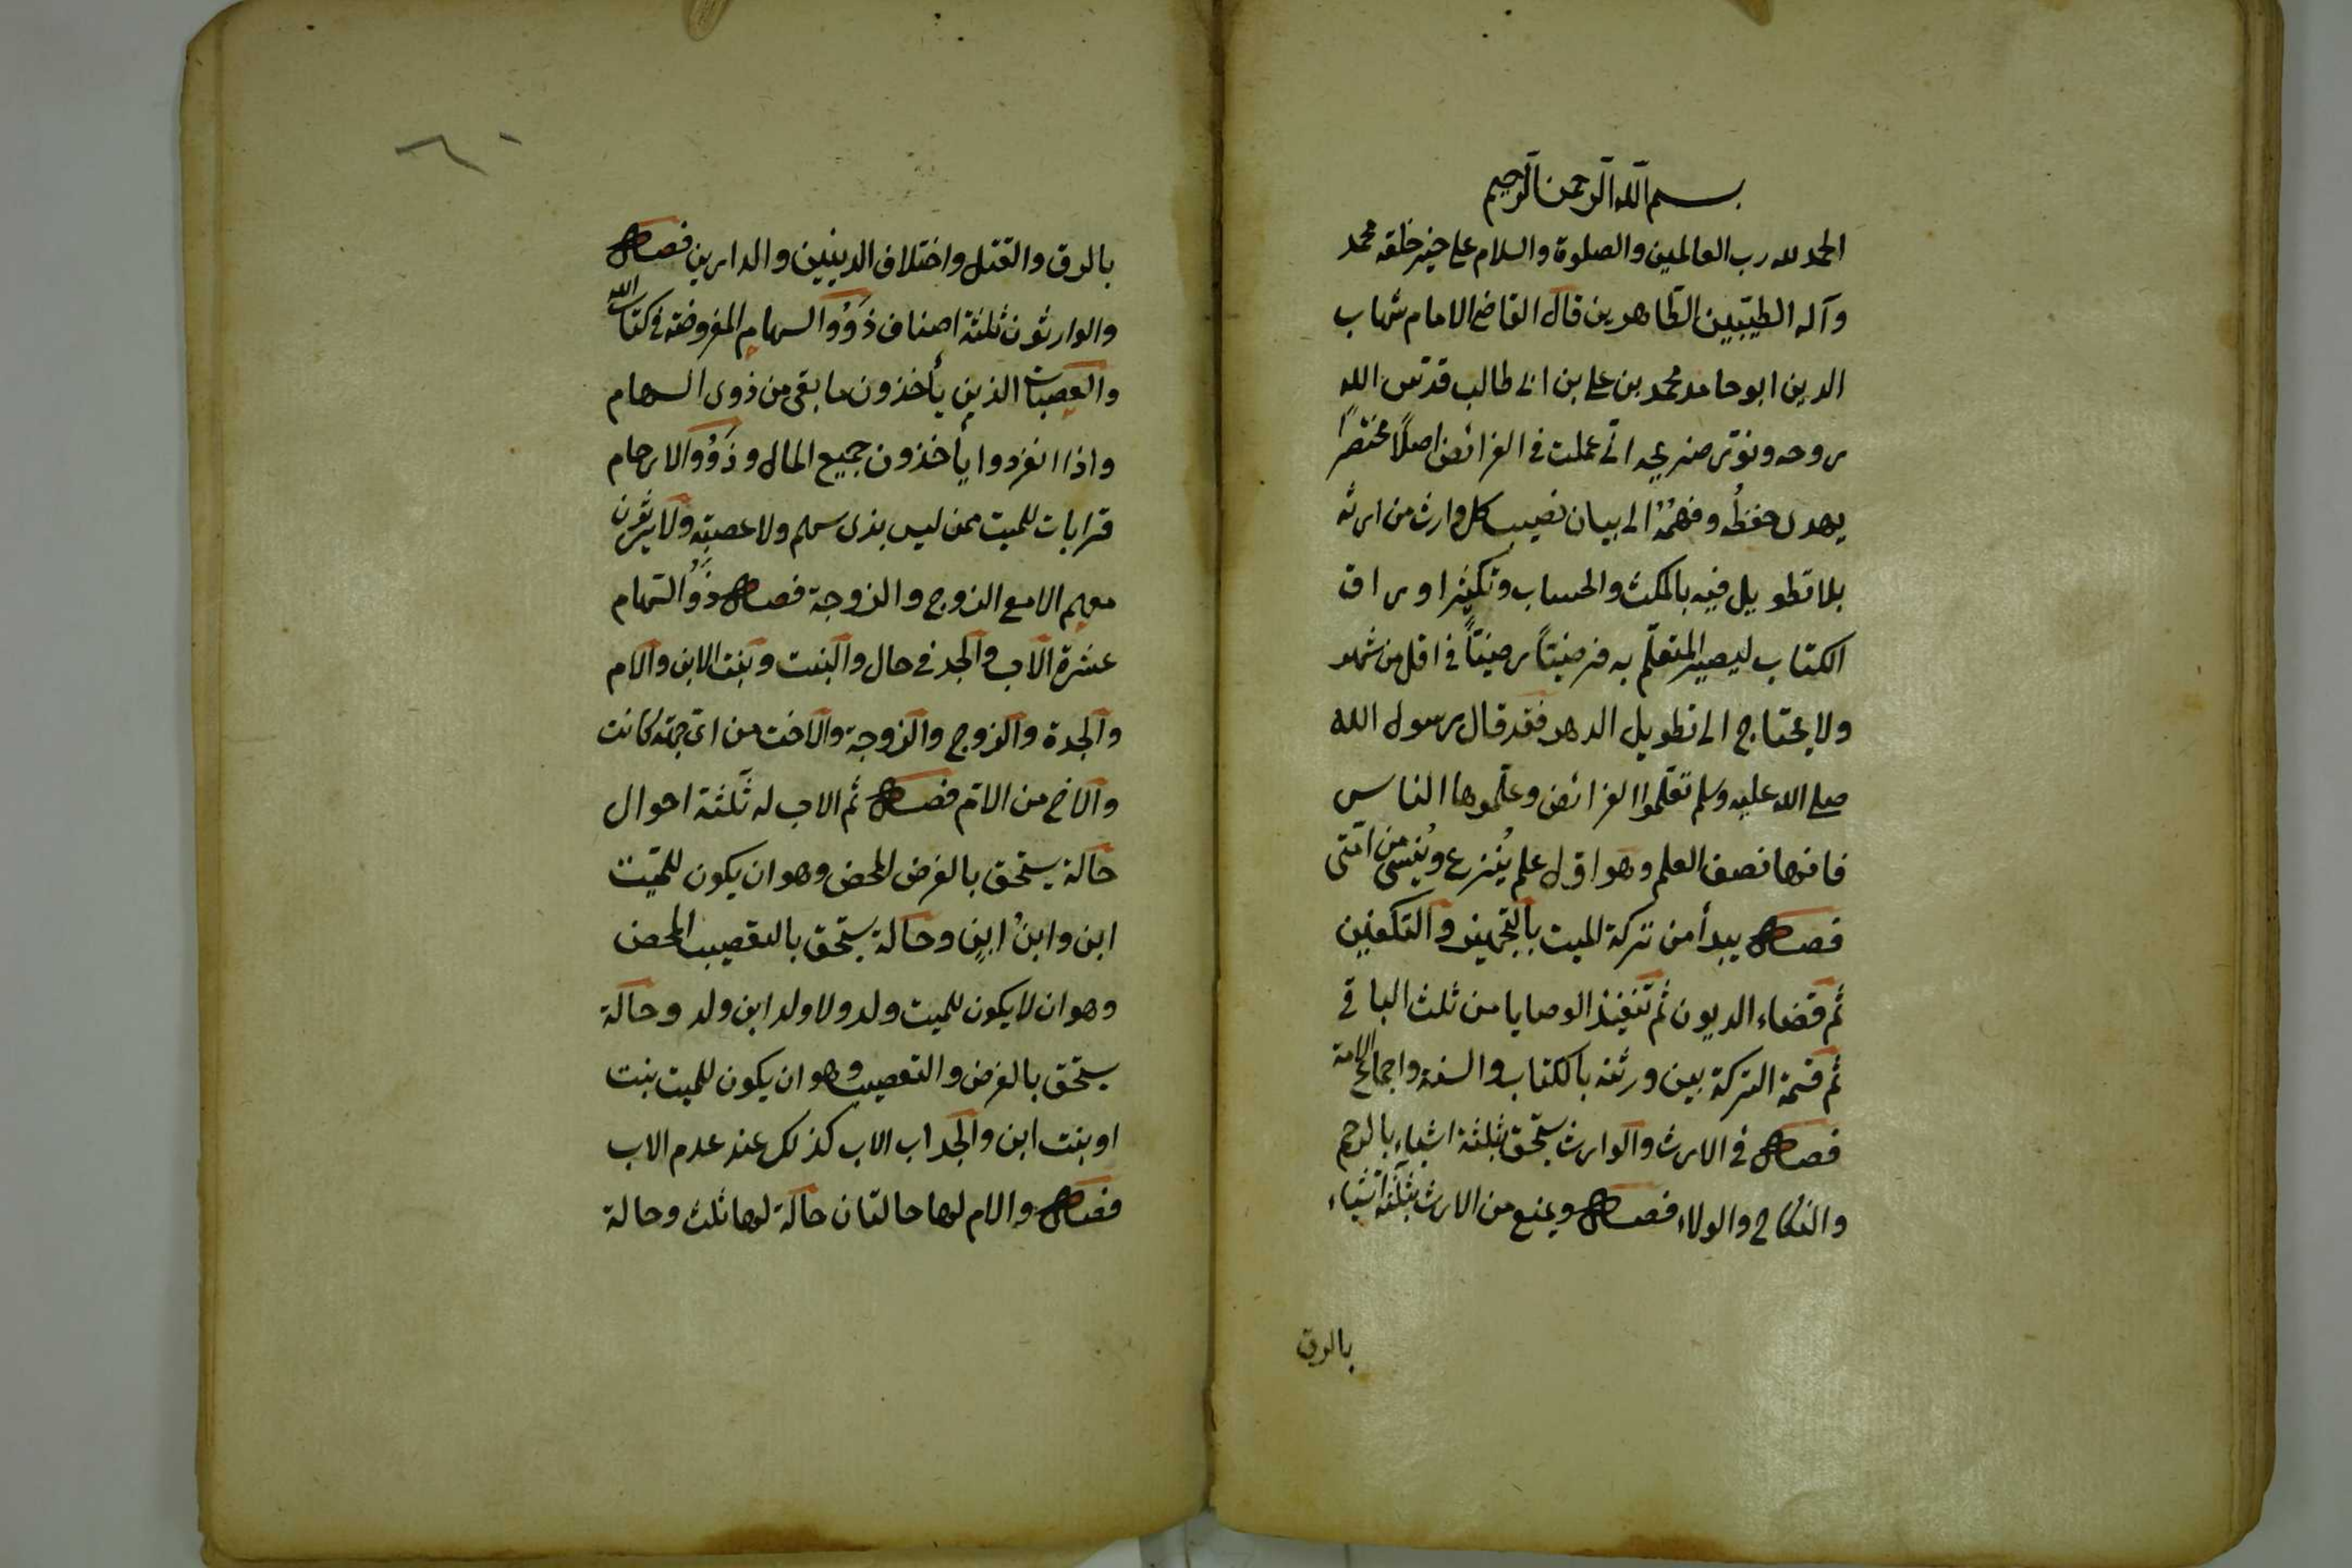 بسم الله الرحمن الرحيم
الحمد لله رب العالمين والصلوة والسلام على خير خلقه محمد
وآله الطيّبين الطّاهرين قال القاضى الامام شهاب
الدين ابو حامد محمد بن على بن ابى طالب قدّس الله
روحه ونوّر ضريحه انّى عملت فى الفرائض اصلًا مختصرًا
يهدى حفظُه وفهمُه الى بيان نصيب كل وارث من ارثه
بلا تطويل فيه بالمكث والحساب وتكثير اوراق
الكتاب ليصير المتعلّم به فرضيّاً رضيّاً فى اقل من شهر
ولا يحتاج الى تطويل الدهر فقد قال رسول الله
صلى الله عليه وسلم تعلّموا الفرائض وعلّموها الناس
فانها نصف العلم وهو اوّل علم يُنزع ويُنسى من امّتى
فصل يبدأ من تركة الميت بالتجهيز والتكفين
ثم قضاء الديون ثم تنفيذ الوصايا من ثلث الباقى
ثم قسمة التركة بين ورثته بالكتاب والسنة واجماع الامة
فصل فى الارث والوارث يستحق بثلثة اشياء بالرحم
والنكاح والولاء فصل ويمنع من الارث بثلثة اشياء
بالرق
٦٠
بالرق والقتل واختلاف الدينين والدارين فصل
والوارثون ثلثة اصناف ذَوُوا السهام المفروضة فى كتاب الله
والعصبات الذين يأخذون ما بقى من ذوى السهام
واذا انفردوا يأخذون جميع المال وذَوُوا الارحام
قرابات للميت ممن ليس بذى سهم ولا عصبة ولا يرثون
معهم الا مع الزوج والزوجة فصل ذَوُوا السّهام
عشرة الاب والجد فى حال والبنت وبنت الابن والام
والجدة والزوج والزوجة والاخت من اىّ جهة كانت
والاخ من الامّ فصل ثم الاب له ثلثة احوال
حالة يستحق بالفرض المحض وهو ان يكون للميّت
ابن وابنُ ابنٍ وحالة يستحق بالتعصيب المحض
وهو ان لا يكون للميت ولد ولا ولد ابن ولد وحالة
يستحق بالفرض والتعصيب وهو ان يكون للميت بنت
او بنت ابن والجد اب الاب كذلك عند عدم الاب
فصل والام لها حالتان حالة لها ثلث وحالة